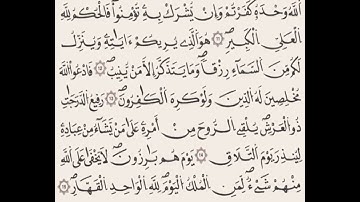 ٱللَّهُ وَحْدَهُۥ كَفَرْتُمْ وَإِن يُشْرَكْ بِهِۦ تُؤْمِنُوا۟ فَٱلْحُكْمُ لِلَّهِ
ٱلْعَلِىِّ ٱلْكَبِيرِ ۝١٢ هُوَ ٱلَّذِى يُرِيكُمْ ءَايَـٰتِهِۦ وَيُنَزِّلُ
لَكُم مِّنَ ٱلسَّمَآءِ رِزْقًا وَمَا يَتَذَكَّرُ إِلَّا مَن يُنِيبُ ۝١٣ فَٱدْعُوا۟ ٱللَّهَ
مُخْلِصِينَ لَهُ ٱلدِّينَ وَلَوْ كَرِهَ ٱلْكَـٰفِرُونَ ۝١٤ رَفِيعُ ٱلدَّرَجَـٰتِ
ذُو ٱلْعَرْشِ يُلْقِى ٱلرُّوحَ مِنْ أَمْرِهِۦ عَلَىٰ مَن يَشَآءُ مِنْ عِبَادِهِۦ
لِيُنذِرَ يَوْمَ ٱلتَّلَاقِ ۝١٥ يَوْمَ هُم بَـٰرِزُونَ لَا يَخْفَىٰ عَلَى ٱللَّهِ
مِنْهُمْ شَىْءٌ لِّمَنِ ٱلْمُلْكُ ٱلْيَوْمَ لِلَّهِ ٱلْوَٰحِدِ ٱلْقَهَّارِ ۝١٦